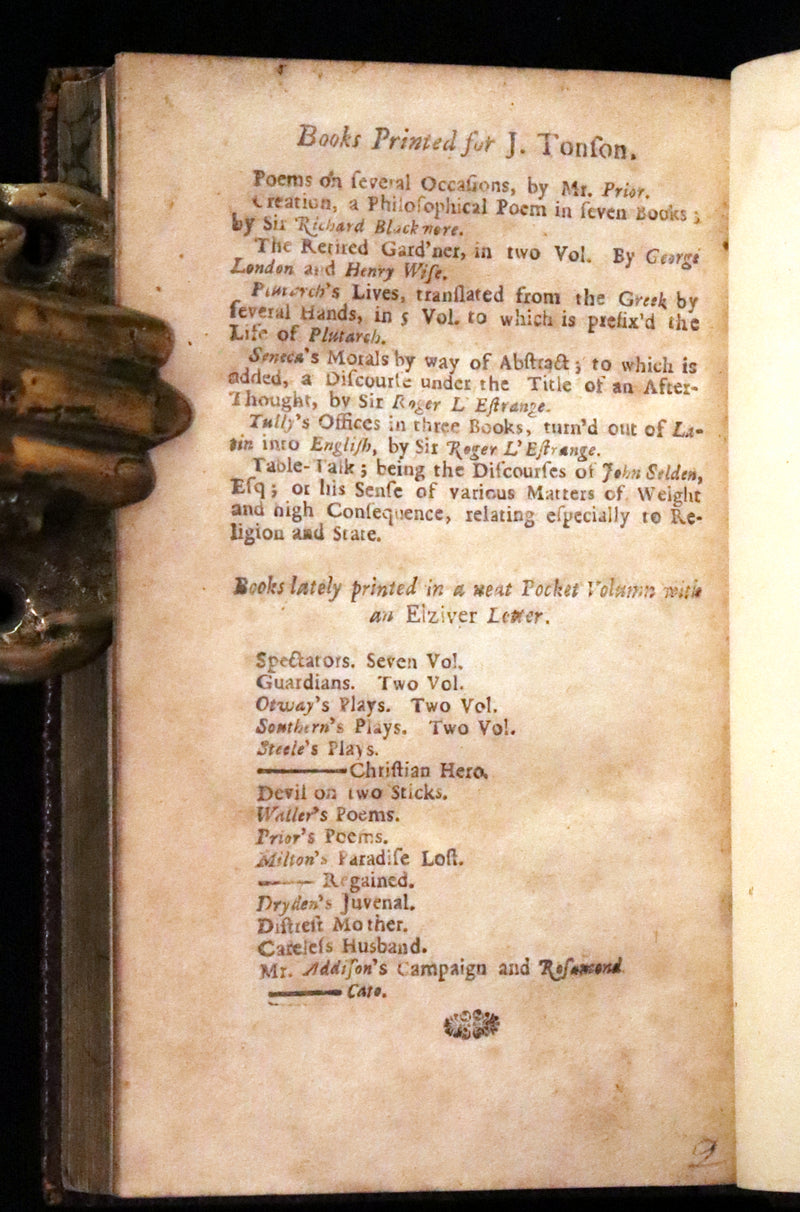 Books Printed for J. Tonſon.
Poems on ſeveral Occaſions, by Mr. Prior.
Creation, a Philoſophical Poem in ſeven Books;
by Sir Richard Blackmore.
The Retired Gard'ner, in two Vol. By George
London and Henry Wiſe.
Plutarch's Lives, tranſlated from the Greek by
ſeveral Hands, in 5 Vol. to which is prefix'd the
Life of Plutarch.
Seneca's Morals by way of Abſtract; to which is
added, a Diſcourſe under the Title of an After-
Thought, by Sir Roger L'Eſtrange.
Tully's Offices in three Books, turn'd out of La-
tin into Engliſh, by Sir Roger L'Eſtrange.
Table-Talk; being the Diſcourſes of John Selden,
Eſq; or his Senſe of various Matters of Weight
and high Conſequence, relating eſpecially to Re-
ligion and State.
Books lately printed in a neat Pocket Volumn with
an Elziver Letter.
Spectators. Seven Vol.
Guardians. Two Vol.
Otway's Plays. Two Vol.
Southern's Plays. Two Vol.
Steele's Plays.
———Chriſtian Hero.
Devil on two Sticks.
Waller's Poems.
Prior's Poems.
Milton's Paradiſe Loſt.
——— Regained.
Dryden's Juvenal.
Diſtreſt Mother.
Careleſs Husband.
Mr. Addiſon's Campaign and Roſamond
——— Cato.